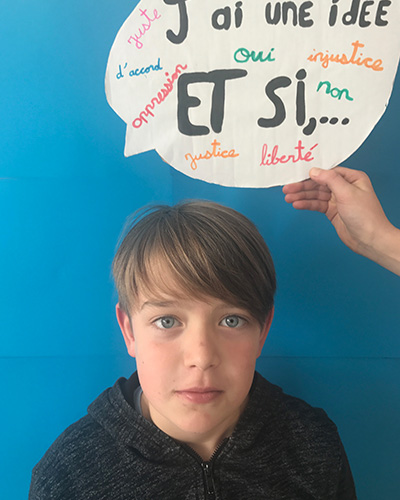 juste
J'ai une idée
d'accord
oui
injustice
oppression
ET Si,...
non
justice
liberté